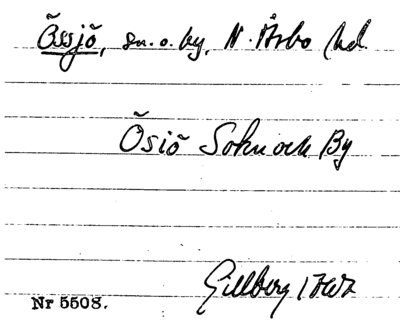 Össjö, sn. o. by, N. Åsbo hd
Ösiö Sokn och By
Gillberg
Nr 5508.